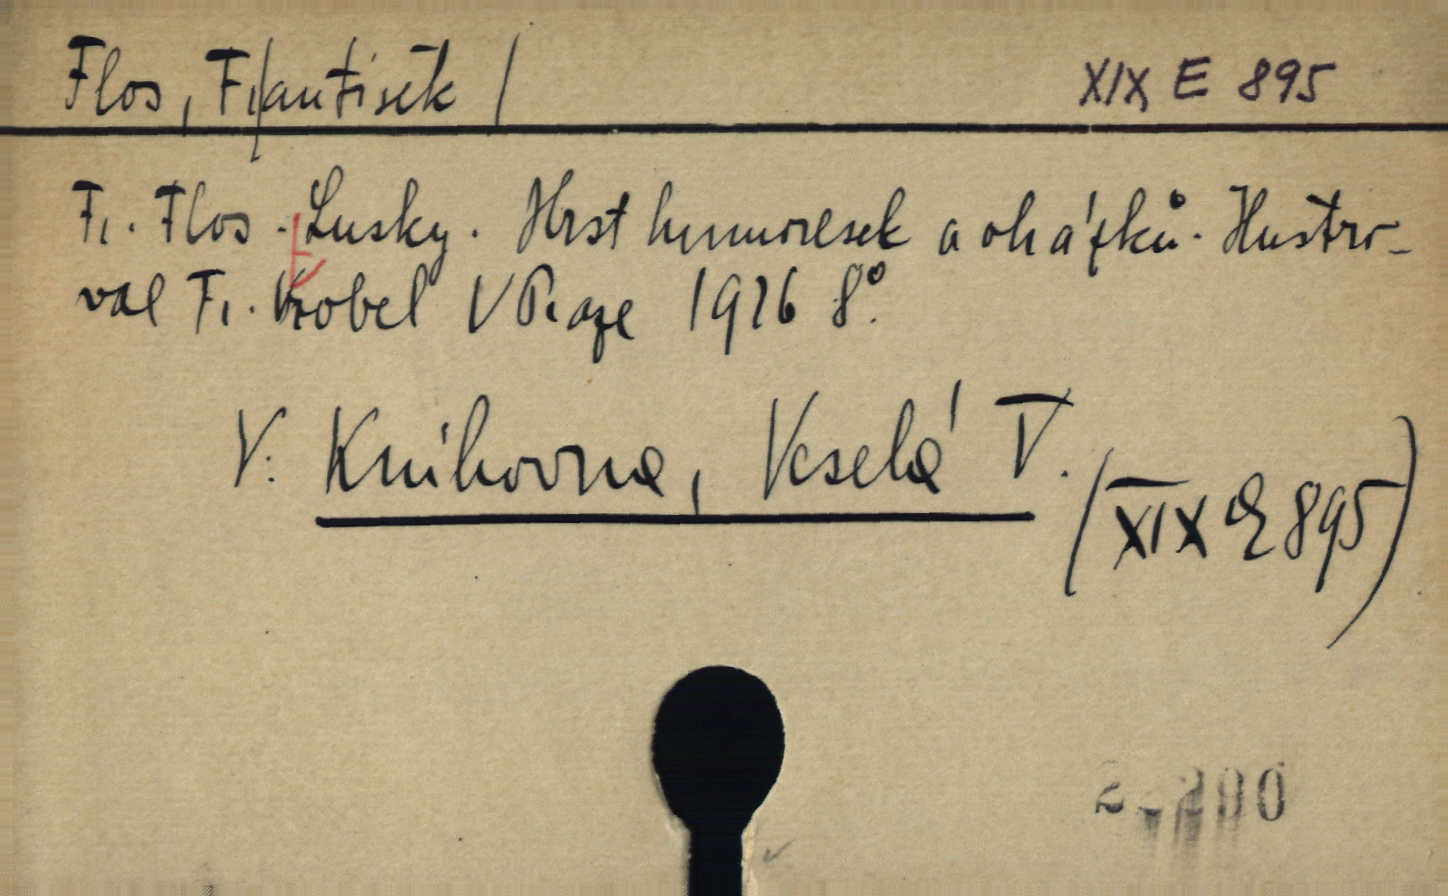 Flos, František
XIX E 895
Fr. Flos. Lusky. Hrst humoresek a oháňků. Ilustro-
val Fr. Vrobel V Praze 1926 8°.
V. Knihovna, Veselá V.
(XIX E 895)